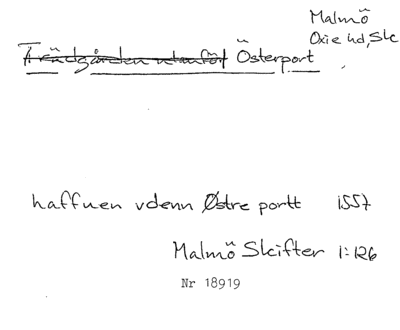 Malmö
Oxie hd, Sk
Trädgården utanför Österport
haffuen vdenn Østre portt 1557
Malmö Skifter 1:126
Nr 18919